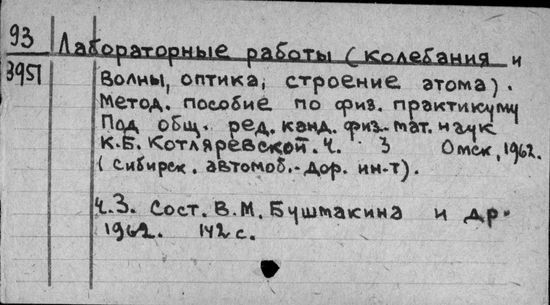 93 Лабораторные работы (колебания и
3951 волны, оптика, строение атома).
Метод. пособие по физ. практикуму
Под общ. ред. канд. физ.-мат. наук
К.Б. Котляревской. Ч. 3 Омск, 1962.
(Сибирск. автомоб.-дор. ин-т).
Ч.3. Сост. В.М. Бушмакина и др.
1962. 142 с.